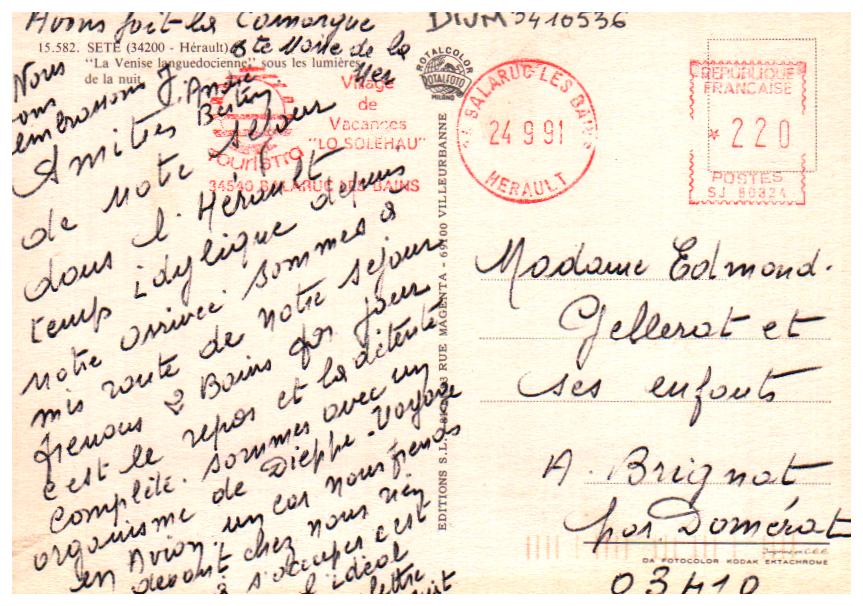 Avons fait la Camargue
Ste Marie de la
Mer
DIVM 3410536
15.582. SETE (34200 - Hérault)
"La Venise languedocienne" sous les lumières
de la nuit.
Nous
vous
embrassons
André
Berthy
Amitiés
de notre séjour
dans l'Hérault
temps idylique depuis
notre arrivée. Sommes à
mis route de notre séjour
prenons 2 Bains par jour
c'est le repos et la détente
Complète. Sommes avec un
organisme de Dieppe. Voyage
en Avion. un car nous prends
devant chez nous rien
à s'occuper c'est
l'idéal
lettre
Touristra
Village
de
Vacances
"LO SOLEHAU"
34540 BALARUC LES BAINS
ROTALCOLOR
ROTALFOTO
MILANO
BALARUC LES BAINS
24 9 91
HERAULT
REPUBLIQUE
FRANCAISE
* 2 20
POSTES
SJ 80324
RUE MAGENTA - 69100 VILLEURBANNE
EDITIONS S.L.
Madame Edmond.
Gellerat et
ses enfants
A. Brignat
par Domérat
DA FOTOCOLOR KODAK EKTACHROME
03410